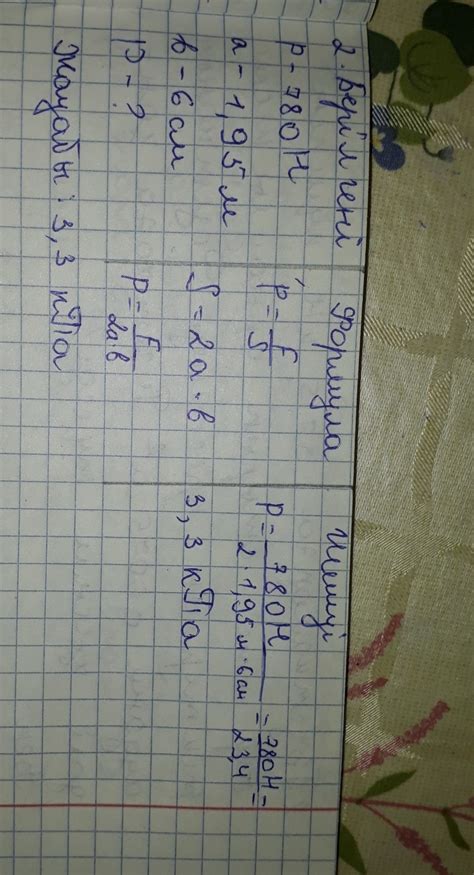 2. Берілгені
р – 780Н
а – 1,95 м
в – 6 см
Р – ?
Формула
р = F/S
S = 2а · в
р = F/2ав
Шешуі
р = 780Н/2·1,95 м·6см = 780Н/23,4 =
3,3 кПа
Жауабы: 3,3 кПа